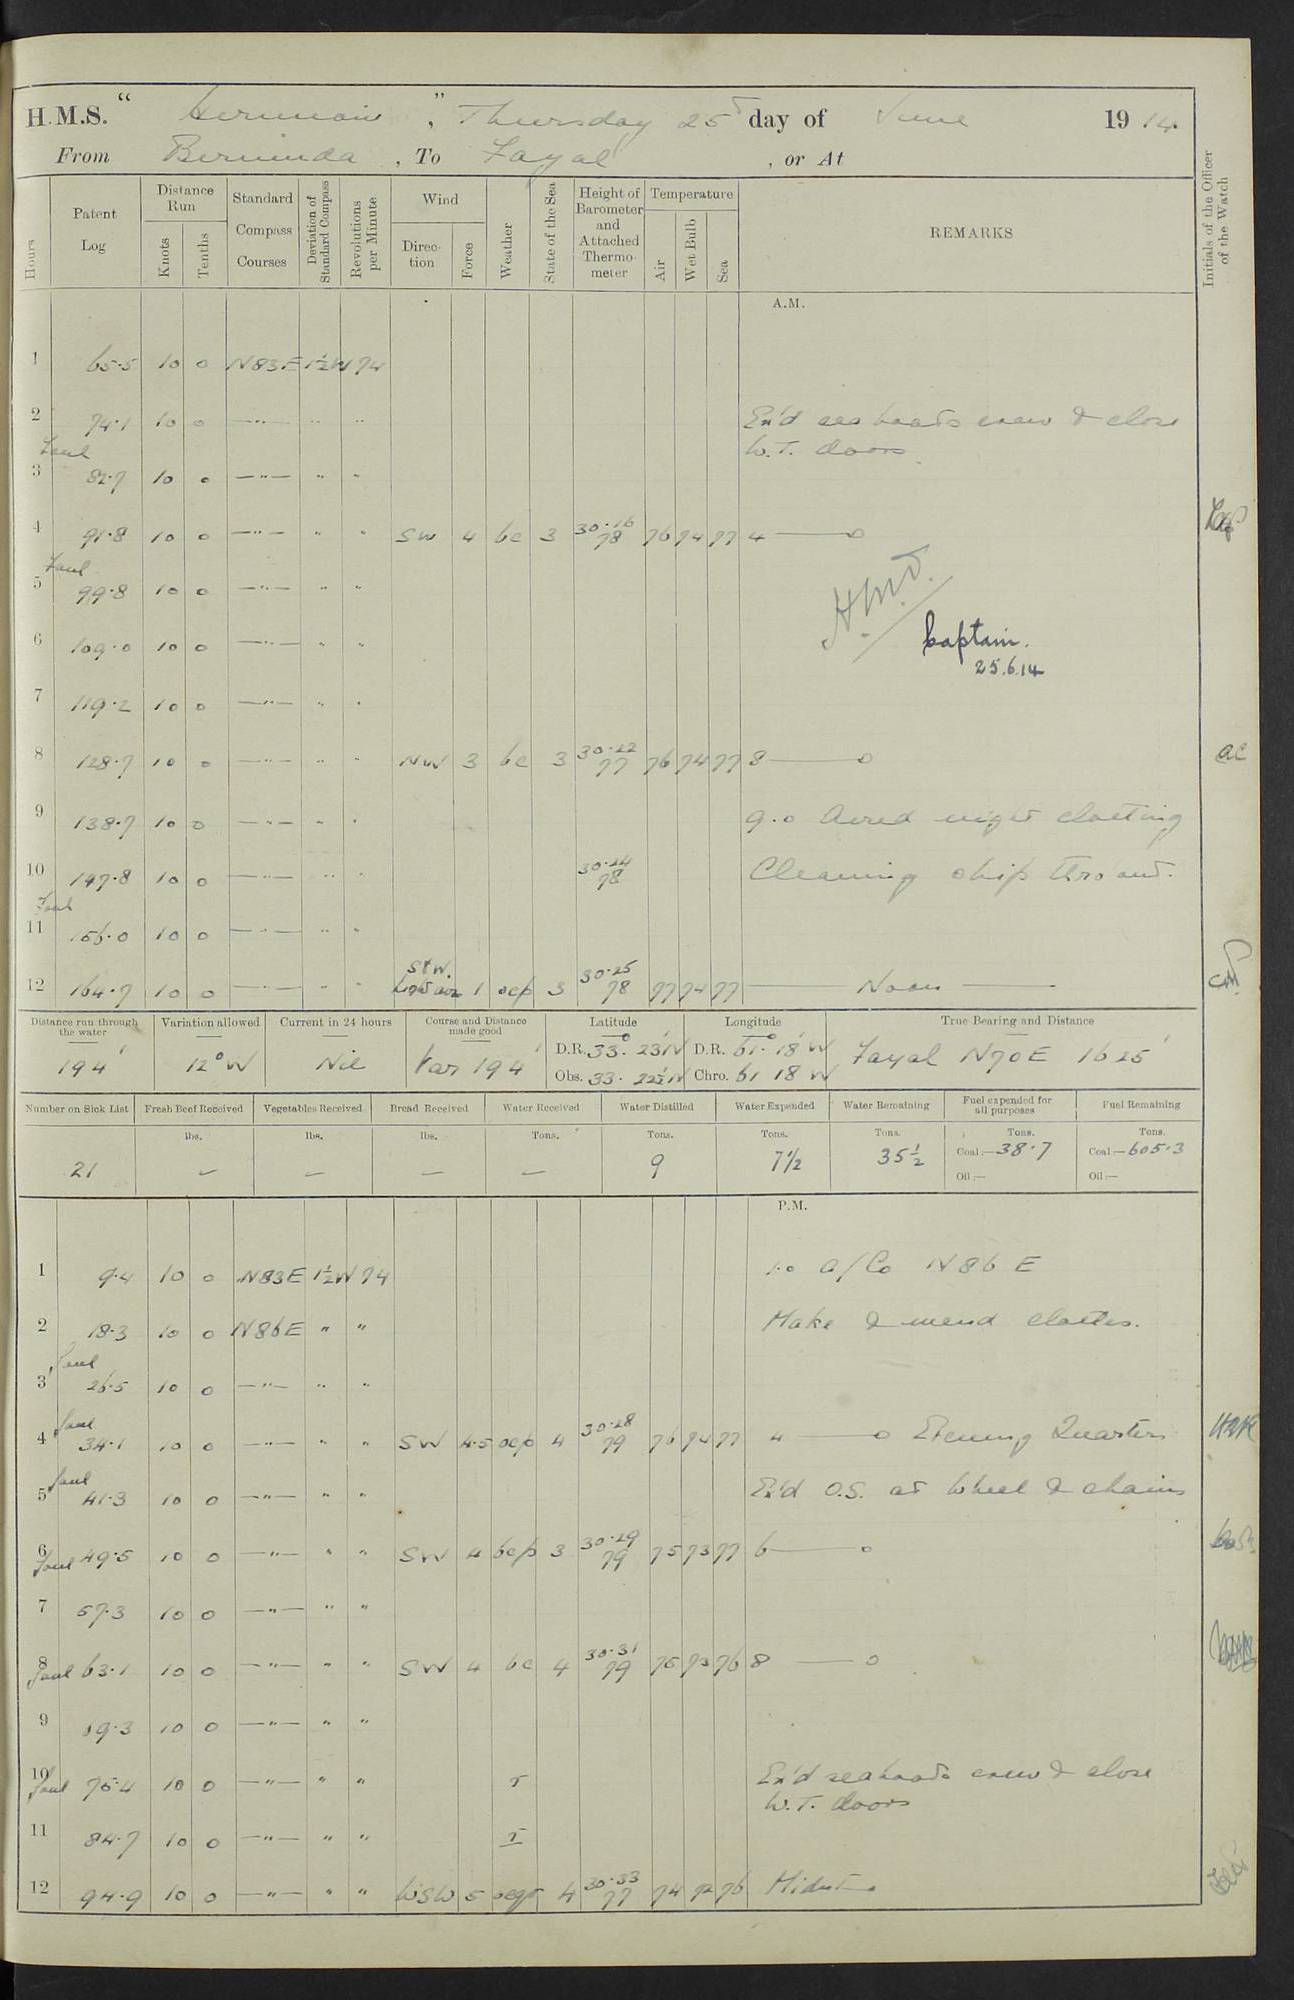 H.M.S. " ", Thursday 25th day of June 1914.
From Bermuda, To Fayal, or At
Hours
Patent Log
Distance Run
Knots
Tenths
Standard Compass Courses
Deviation of Standard Compass
Revolutions per Minute
Wind
Direction
Force
Weather
State of the Sea
Height of Barometer and Attached Thermometer
Temperature
Air
Wet Bulb
Sea
REMARKS
Initials of the Officer of the Watch
A.M.
1 65.5 10 0 N83E 1½W 74
2 74.1 10 0 —"— " " Ex'd sea boats crew & close
W.T. doors
Foul
3 82.7 10 0 —"— " "
4 91.8 10 0 —"— " " SW 4 bc 3 30.16 78 76 74 77 4 —— 0
Foul
5 99.8 10 0 —"— " "
6 109.0 10 0 —"— " "
Captain.
25.6.14
7 119.2 10 0 —"— " "
8 128.7 10 0 —"— " " NW 3 bc 3 30.22 77 76 74 77 8 —— 0
9 138.7 10 0 —"— " " 9.0 Aired night clothing
10 147.8 10 0 —"— " " 30.24 78 Cleaning ship thro'out.
Foul
11 156.0 10 0 —"— " "
12 164.7 10 0 —"— " " StW. Light airs 1 ocp 3 30.25 78 77 74 77 —— Noon ——
Distance run through the water
194'
Variation allowed
12° W
Current in 24 hours
Nil
Course and Distance made good
Var 194'
Latitude
D.R. 33° 23'N
Obs. 33. 22½ N
Longitude
D.R. 61° 18' W
Chro. 61 18 W
True Bearing and Distance
Fayal N70E 1625'
Number on Sick List
21
Fresh Beef Received
lbs.
—
Vegetables Received
lbs.
—
Bread Received
lbs.
—
Water Received
Tons.
—
Water Distilled
Tons.
9
Water Expended
Tons.
7½
Water Remaining
Tons.
35½
Fuel expended for all purposes
Tons.
Coal:—38.7
Oil:—
Fuel Remaining
Tons.
Coal:—605.3
Oil:—
P.M.
1 9.4 10 0 N83E 1½W 74 1.0 a/Co N86E
2 18.3 10 0 N86E " " Make & mend clothes.
Foul
3 26.5 10 0 —"— " "
Foul
4 34.1 10 0 —"— " " SW 4.5 ocp 4 30.28 79 76 74 77 4 —— 0 Evening Quarters
Foul
5 41.3 10 0 —"— " " Ex'd O.S. at wheel & chains
6 Foul 49.5 10 0 —"— " " SW 4 bcp 3 30.29 79 75 73 77 6 —— 0
7 57.3 10 0 —"— " "
8 Foul 63.1 10 0 —"— " " SW 4 bc 4 30.31 79 75 73 76 8 —— 0
9 69.3 10 0 —"— " "
10 Foul 75.4 10 0 —"— " " r Ex'd seaboats crew & close
W.T. doors
11 84.7 10 0 —"— " " r
12 94.9 10 0 —"— " " WSW 5 ocqr 4 30.33 77 74 72 76 Midnt